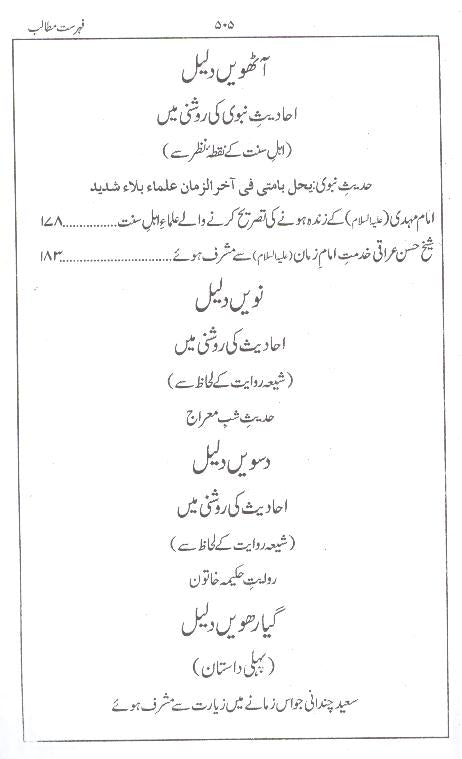 فہرست مطالب ۵۰۵
آٹھویں دلیل
احادیثِ نبوی کی روشنی میں
(اہل سنت کے نقطۂ نظر سے)
حدیثِ نبوی: یحل بامتی فی آخر الزمان علماء بلاء شدید
امام مہدی (علیہ السلام) کے زندہ ہونے کی تصریح کرنے والے علماءِ اہل سنت ................ ۱۷۸
شیخ حسن عراقی خدمتِ امام زمان (علیہ السلام) سے مشرف ہوئے ................................ ۱۸۳
نویں دلیل
احادیث کی روشنی میں
(شیعہ روایت کے لحاظ سے)
حدیثِ شبِ معراج
دسویں دلیل
احادیث کی روشنی میں
(شیعہ روایت کے لحاظ سے)
روایتِ حکیمہ خاتون
گیارھویں دلیل
(پہلی داستان)
سعید چندانی جو اس زمانے میں زیارت سے مشرف ہوئے